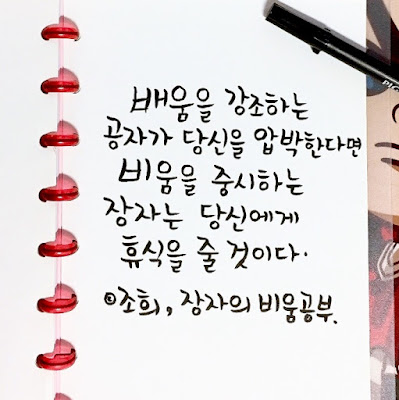 배움을 강조하는
공자가 당신을 압박한다면
비움을 중시하는
장자는 당신에게
휴식을 줄 것이다.
©조희, 장자의 비움공부.